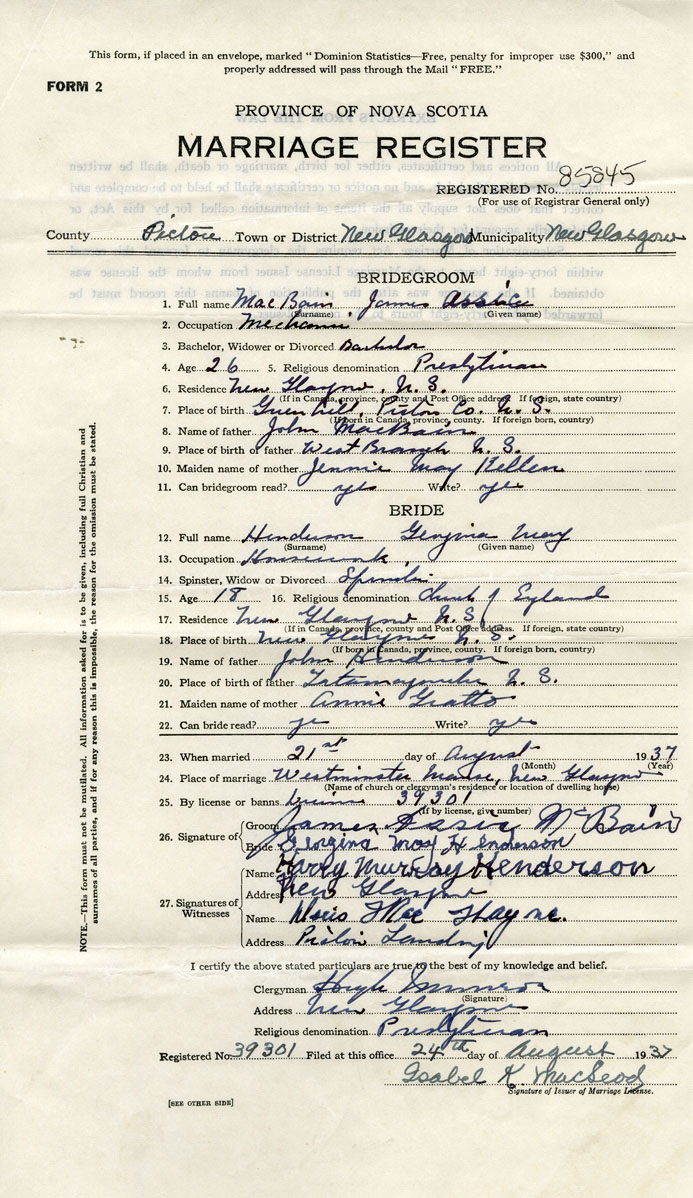 This form, if placed in an envelope, marked "Dominion Statistics—Free, penalty for improper use $300," and
properly addressed will pass through the Mail "FREE."
FORM 2
PROVINCE OF NOVA SCOTIA
MARRIAGE REGISTER
REGISTERED No. 85845
(For use of Registrar General only)
County Pictou Town or District New Glasgow Municipality New Glasgow
BRIDEGROOM
1. Full name MacBain James Assice
(Surname) (Given name)
2. Occupation Mechanic
3. Bachelor, Widower or Divorced Bachelor
4. Age 26 5. Religious denomination Presbyterian
6. Residence New Glasgow, N.S.
(If in Canada, province, county and Post Office address. If foreign, state country)
7. Place of birth Green Hill, Pictou Co. N.S.
(If born in Canada, province, county. If foreign born, country)
8. Name of father John MacBain
9. Place of birth of father West Branch N.S.
10. Maiden name of mother Jennie May
11. Can bridegroom read? yes Write? yes
BRIDE
12. Full name Henderson Georgina May
(Surname) (Given name)
13. Occupation Housework
14. Spinster, Widow or Divorced Spinster
15. Age 18 16. Religious denomination Church of England
17. Residence New Glasgow N.S.
(If in Canada, province, county and Post Office address. If foreign, state country)
18. Place of birth New Glasgow N.S.
(If born in Canada, province, county. If foreign born, country)
19. Name of father John Henderson
20. Place of birth of father Tatamagouche N.S.
21. Maiden name of mother Annie Gratto
22. Can bride read? yes Write? yes
23. When married 21st day of August 1937
(Month) (Year)
24. Place of marriage Westminster Manse, New Glasgow
(Name of church or clergyman's residence or location of dwelling house)
25. By license or banns License 39301
(If by license, give number)
26. Signature of Groom James Assie McBain
Bride Georgina May Henderson
27. Signatures of Witnesses
Name Harry Murray Henderson
Address New Glasgow
Name Hayne.
Address Pictou Landing
I certify the above stated particulars are true to the best of my knowledge and belief.
Clergyman Hugh
(Signature)
Address New Glasgow
Religious denomination Presbyterian
Registered No. 39301 Filed at this office 24th day of August 1937
Isabel K. MacLeod
Signature of Issuer of Marriage License.
[SEE OTHER SIDE]
NOTE.—This form must not be mutilated. All information asked for is to be given, including full Christian and
surnames of all parties, and if for any reason this is impossible, the reason for the omission must be stated.